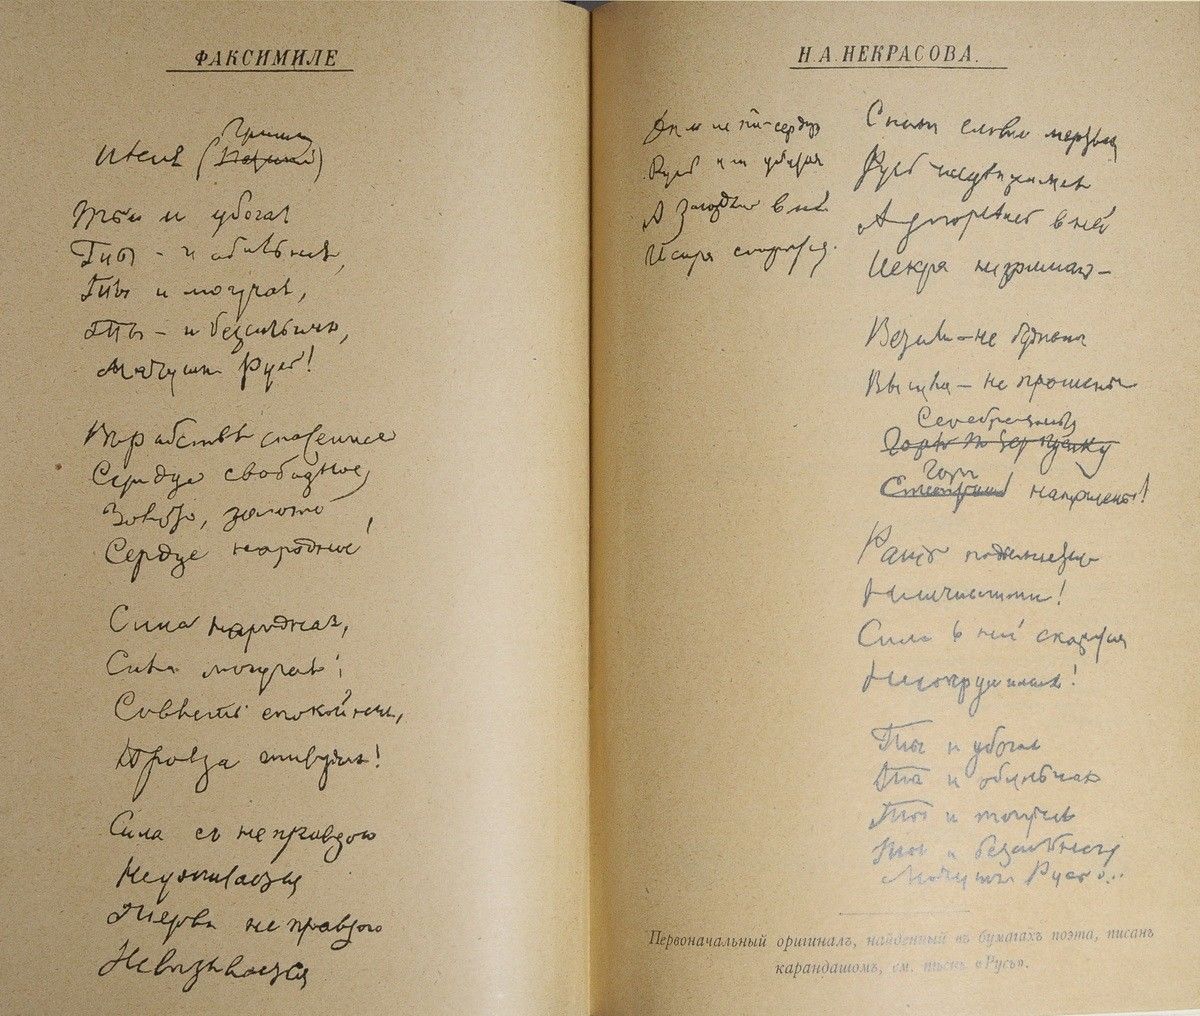 ФАКСИМИЛЕ
Гриши
Пѣсня
Ты и убогая
Ты - и обильная,
Ты и могучая,
Ты - и безсильная,
Матушка Русь!
Въ рабствѣ спасенное
Сердце свободное,
Золото, золото
Сердце народное!
Сила народная,
Сила могучая:
Совѣсть спокойная,
Правда живучая!
Сила съ неправдою
Неуживается
Жертва неправдою
Невызывается
Н.А.НЕКРАСОВА.
Русь не убитая
А въ ней
Искра сокрытая.
Русь неподвижная
А въ ней
Искра
Встали - не бужены
Вышли - не прошены
Горы
нагружены!
Рать подымается
Неисчислимая!
Сила в ней скажется
Несокрушимая!
Ты и убогая
Ты и обильная
Ты и
Ты и безсильная
Матушка Русь!..
Первоначальный оригиналъ, найденный въ бумагахъ поэта, писанъ
карандашомъ, см. пѣснь «Русь».